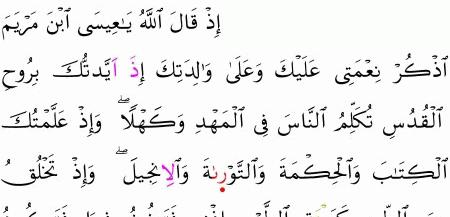 إِذْ قَالَ ٱللَّهُ يَـٰعِيسَى ٱبْنَ مَرْيَمَ
ٱذْكُرْ نِعْمَتِى عَلَيْكَ وَعَلَىٰ وَٰلِدَتِكَ إِذَ ا۬يَّدتُّكَ بِرُوحِ
ٱلْقُدُسِ تُكَلِّمُ ٱلنَّاسَ فِى ٱلْمَهْدِ وَكَهْلًاۖ وَإِذْ عَلَّمْتُكَ
ٱلْكِتَـٰبَ وَٱلْحِكْمَةَ وَٱلتَّوْرَىٰةَ وَٱلِانجِيلَۖ وَإِذْ تَخْلُقُ